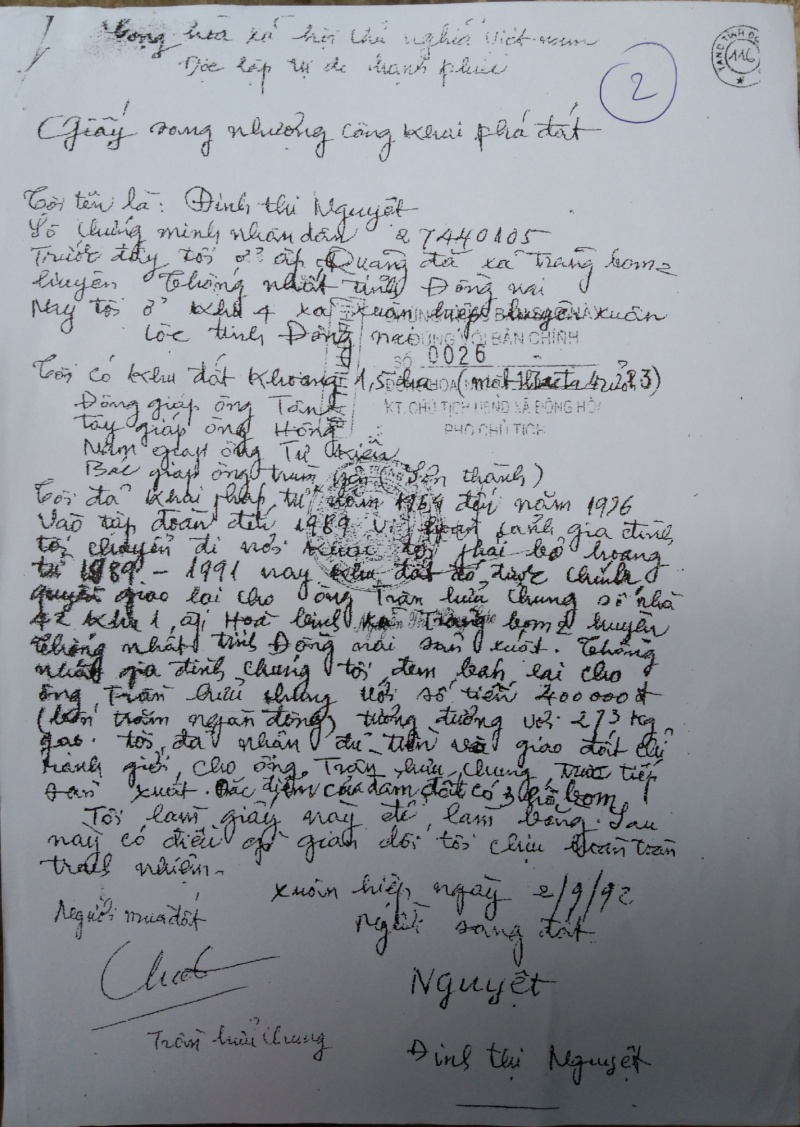 Cộng hòa xã hội chủ nghĩa Việt nam
Độc lập tự do hạnh phúc
2
116
Giấy sang nhượng công khai phá đất
Tôi tên là: Đinh thị Nguyệt
Số chứng minh nhân dân 27440105
Trước đây tôi ở ấp Quảng đà xã Trảng bom 2
huyện Thống nhất tỉnh Đồng nai
Nay tôi ở khu 4 xã xuân hiệp huyện xuân
lộc tỉnh Đồng nai
CHỨNG THỰC BẢN SAO
ĐÚNG VỚI BẢN CHÍNH
SỐ 0026
Tôi có khu đất khoảng 1,5 ha (một
KT.CHỦ TỊCH UBND XÃ ĐÔNG HÒA
PHÓ CHỦ TỊCH
Đông giáp ông Tân
tây giáp ông Hồng
Nam giáp ông Tư Kiển
Bắc giáp ông trùm yên (Sơn thành)
Tôi đã khai phá từ năm 1969 đến năm 1976
Vào tập đoàn đến 1989 vì hoàn cảnh gia đình
tôi chuyển đi nơi khác tôi phải bỏ hoang
từ 1989 - 1991 nay khu đất đó được chính
quyền giao lại cho ông Trần hữu Chung số nhà
42 khu 1, ấp Hoà bình xã Trảng bom 2 huyện
thống nhất tỉnh Đồng nai sản xuất. Thống
nhất gia đình chúng tôi đem bán lại cho
ông Trần hữu chung với số tiền 400000đ
(bốn trăm ngàn đồng) tương đương với 273 kg
gạo. tôi đã nhận đủ tiền và giao đất chỉ
ranh giới cho ông Trần hữu Chung trực tiếp
sản xuất. Đặc điểm của đám đất có 3 hố bom
Tôi làm giấy này để làm bằng. Sau
này có điều gì gian dối tôi chịu hoàn toàn
trách nhiệm.
xuân hiệp ngày 2/9/92
Người mua đất
Người sang đất
Nguyệt
Trần hữu Chung
Đinh thị Nguyệt